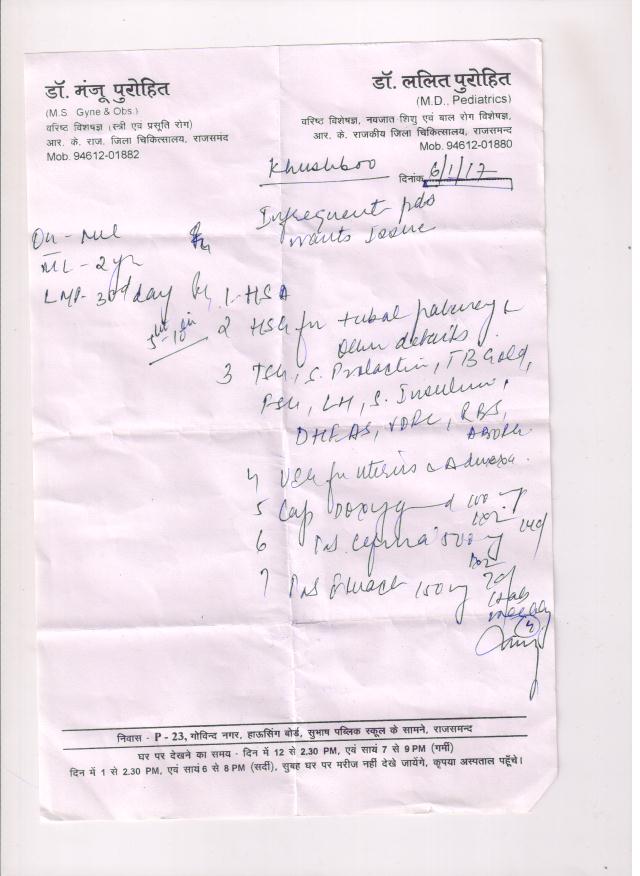 डॉ. मंजू पुरोहित
(M.S. Gyne & Obs.)
वरिष्ठ विशेषज्ञ (स्त्री एवं प्रसूति रोग)
आर. के. राज. जिला चिकित्सालय, राजसमंद
Mob. 94612-01882
डॉ. ललित पुरोहित
(M.D., Pediatrics)
वरिष्ठ विशेषज्ञ, नवजात शिशु एवं बाल रोग विशेषज्ञ,
आर. के. राजकीय जिला चिकित्सालय, राजसमन्द
Mob. 94612-01880
Khushboo
दिनांक 6/1/17
Infrequent pds
wants Issue
ML - 2 yr
LMP - 30th day
1 - HSA
2 HSG for tubal patency &
Other details
3 TSH, S. Prolactin, TB Gold,
FSH, LH, S. Insulin,
DHEAS, VDRL, RBS,
ABORh.
4 USG for uterus & Adnexa.
5 Cap Doxy 100
6 500
7 150
weekly
निवास - P - 23, गोविन्द नगर, हाऊसिंग बोर्ड, सुभाष पब्लिक स्कूल के सामने, राजसमन्द
घर पर देखने का समय - दिन में 12 से 2.30 PM, एवं सायं 7 से 9 PM (गर्मी)
दिन में 1 से 2.30 PM, एवं सायं 6 से 8 PM (सर्दी), सुबह घर पर मरीज नहीं देखे जायेंगे, कृपया अस्पताल पहुँचे।